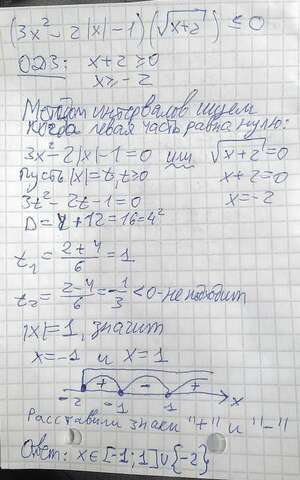 (3x² - 2|x| - 1)(√x+2) ≤ 0
ОДЗ: x+2 ≥ 0
x ≥ -2
Методом интервалов ищем
когда левая часть равна нулю:
3x² - 2|x| - 1 = 0 или √x+2 = 0
Пусть |x| = t, t ≥ 0 x+2 = 0
3t² - 2t - 1 = 0 x = -2
D = 4 + 12 = 16 = 4²
t₁ = (2+4)/6 = 1
t₂ = (2-4)/6 = -1/3 < 0 - не подходит
|x| = 1, значит
x = -1 и x = 1
+ - +
-2 -1 1 x
Расставили знаки "+" и "-"
Ответ: x ∈ [-1; 1] ∪ {-2}